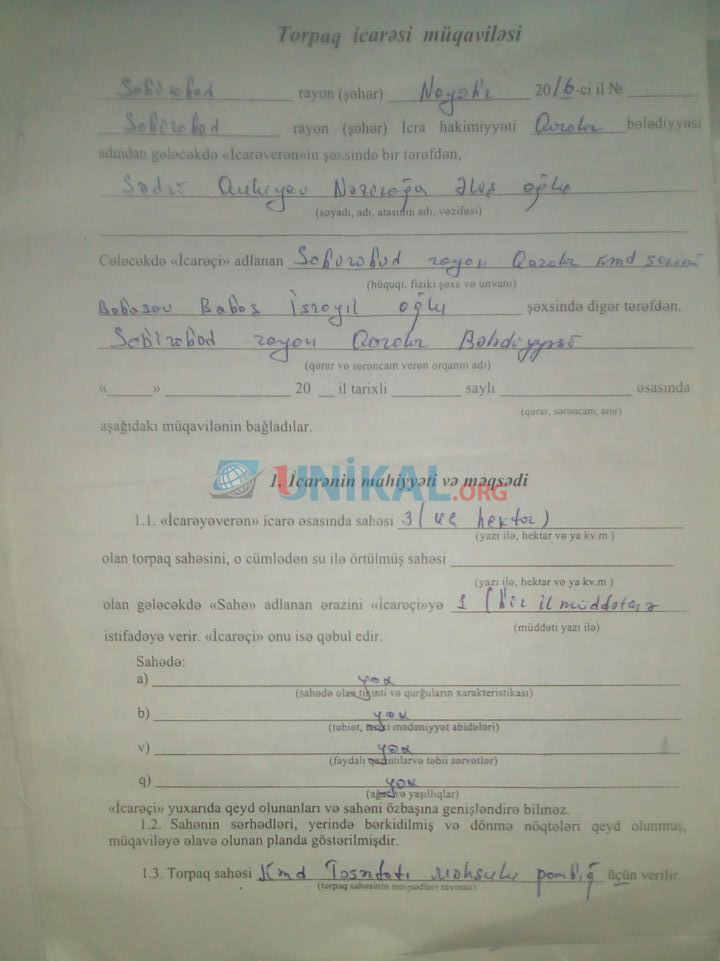 Torpaq icarəsi müqaviləsi
Sabirabad rayon (şəhər) Noyabr 2016-ci il №
Sabirabad rayon (şəhər) İcra hakimiyyəti Qaralar bələdiyyəsi
adından gələcəkdə «İcarəverən»in şəxsində bir tərəfdən,
Sədri Quliyev Nəsirağa oğlu
(soyadı, adı, atasının adı, vəzifəsi)
Gələcəkdə «İcarəçi» adlanan Sabirabad rayon Qaralar kənd
(hüquqi, fiziki şəxs və ünvanı)
Babaşov Babaş İsrayıl oğlu şəxsində digər tərəfdən.
Sabirabad rayon Qaralar Bələdiyyəsi
(qərar və sərəncam verən orqanın adı)
«____» ____ 20 __ il tarixli ____ saylı ____ əsasında
(qərar, sərəncam, əmr)
aşağıdakı müqavilənin bağladılar.
UNIKAL.ORG
1. İcarənin mahiyyəti və məqsədi
1.1. «İcarəyəverən» icarə əsasında sahəsi 3 (üç hektar)
(yazı ilə, hektar və ya kv.m )
olan torpaq sahəsini, o cümlədən su ilə örtülmüş sahəsi
(yazı ilə, hektar və ya kv.m )
olan gələcəkdə «Sahə» adlanan ərazini «İcarəçi»yə 1 (bir il müddətinə
(müddəti yazı ilə)
istifadəyə verir. «İcarəçi» onu isə qəbul edir.
Sahədə:
a) yox
(sahədə olan tikinti və qurğuların xarakteristikası)
b) yox
(təbiət, mədəniyyət abidələri)
v) yox
(faydalı qazıntılarvə təbii sərvətlər)
q) yox
(ağac və yaşıllıqlar)
«İcarəçi» yuxarıda qeyd olunanları və sahəni özbaşına genişləndirə bilməz.
1.2. Sahənin sərhədləri, yerində bərkidilmiş və dönmə nöqtələri qeyd olunmuş,
müqaviləyə əlavə olunan planda göstərilmişdir.
1.3. Torpaq sahəsi Kənd Təsərrüfatı məhsulu pambıq üçün verilir.